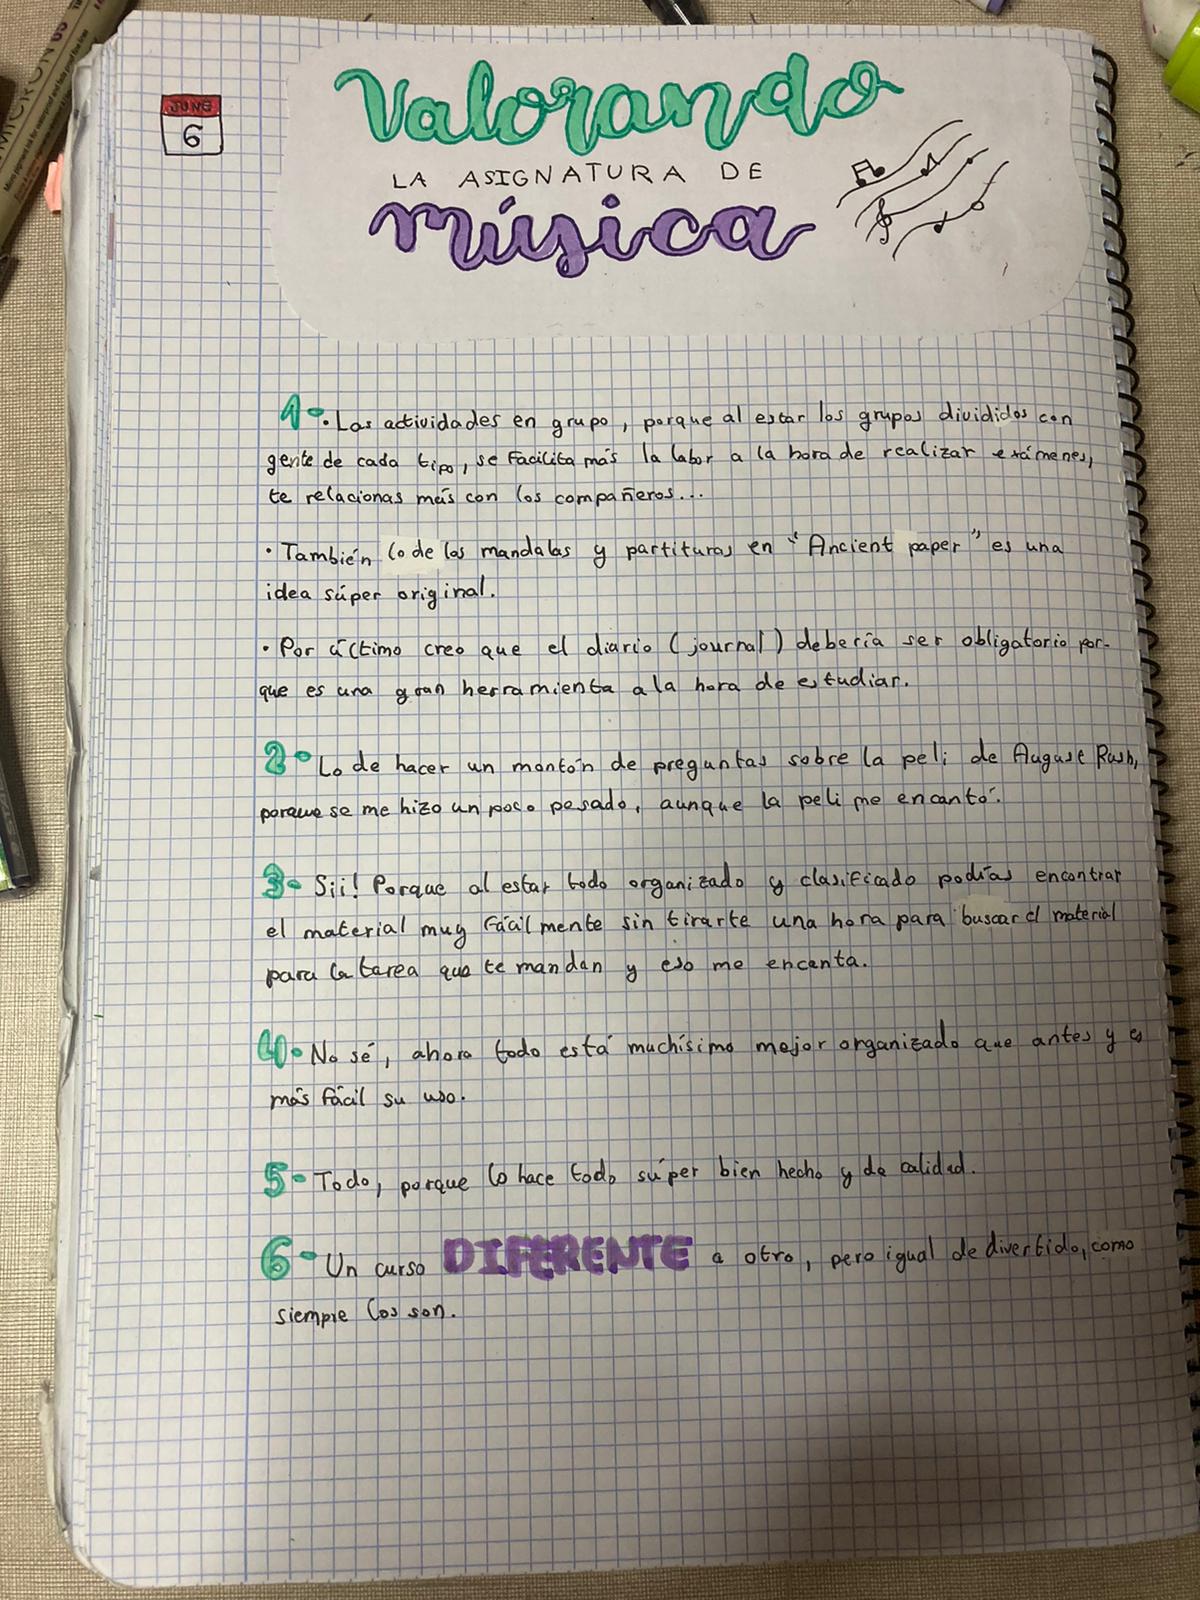 JUNE
6
Valorando
LA ASIGNATURA DE
música
1-. Las actividades en grupo, porque al estar los grupos divididos con
gente de cada tipo, se facilita más la labor a la hora de realizar exámenes,
te relacionas más con los compañeros...
· También lo de los mandalas y partituras en "Ancient paper" es una
idea súper original.
· Por último creo que el diario (journal) debería ser obligatorio por-
que es una gran herramienta a la hora de estudiar.
2- Lo de hacer un montón de preguntas sobre la peli de August Rush,
porque se me hizo un poco pesado, aunque la peli me encantó.
3- Sii! Porque al estar todo organizado y clasificado podías encontrar
el material muy fácilmente sin tirarte una hora para buscar el material
para la tarea que te mandan y eso me encanta.
4- No sé, ahora todo está muchísimo mejor organizado que antes y es
más fácil su uso.
5- Todo, porque lo hace todo súper bien hecho y de calidad.
6- Un curso DIFERENTE a otro, pero igual de divertido, como
siempre los son.
MICRON